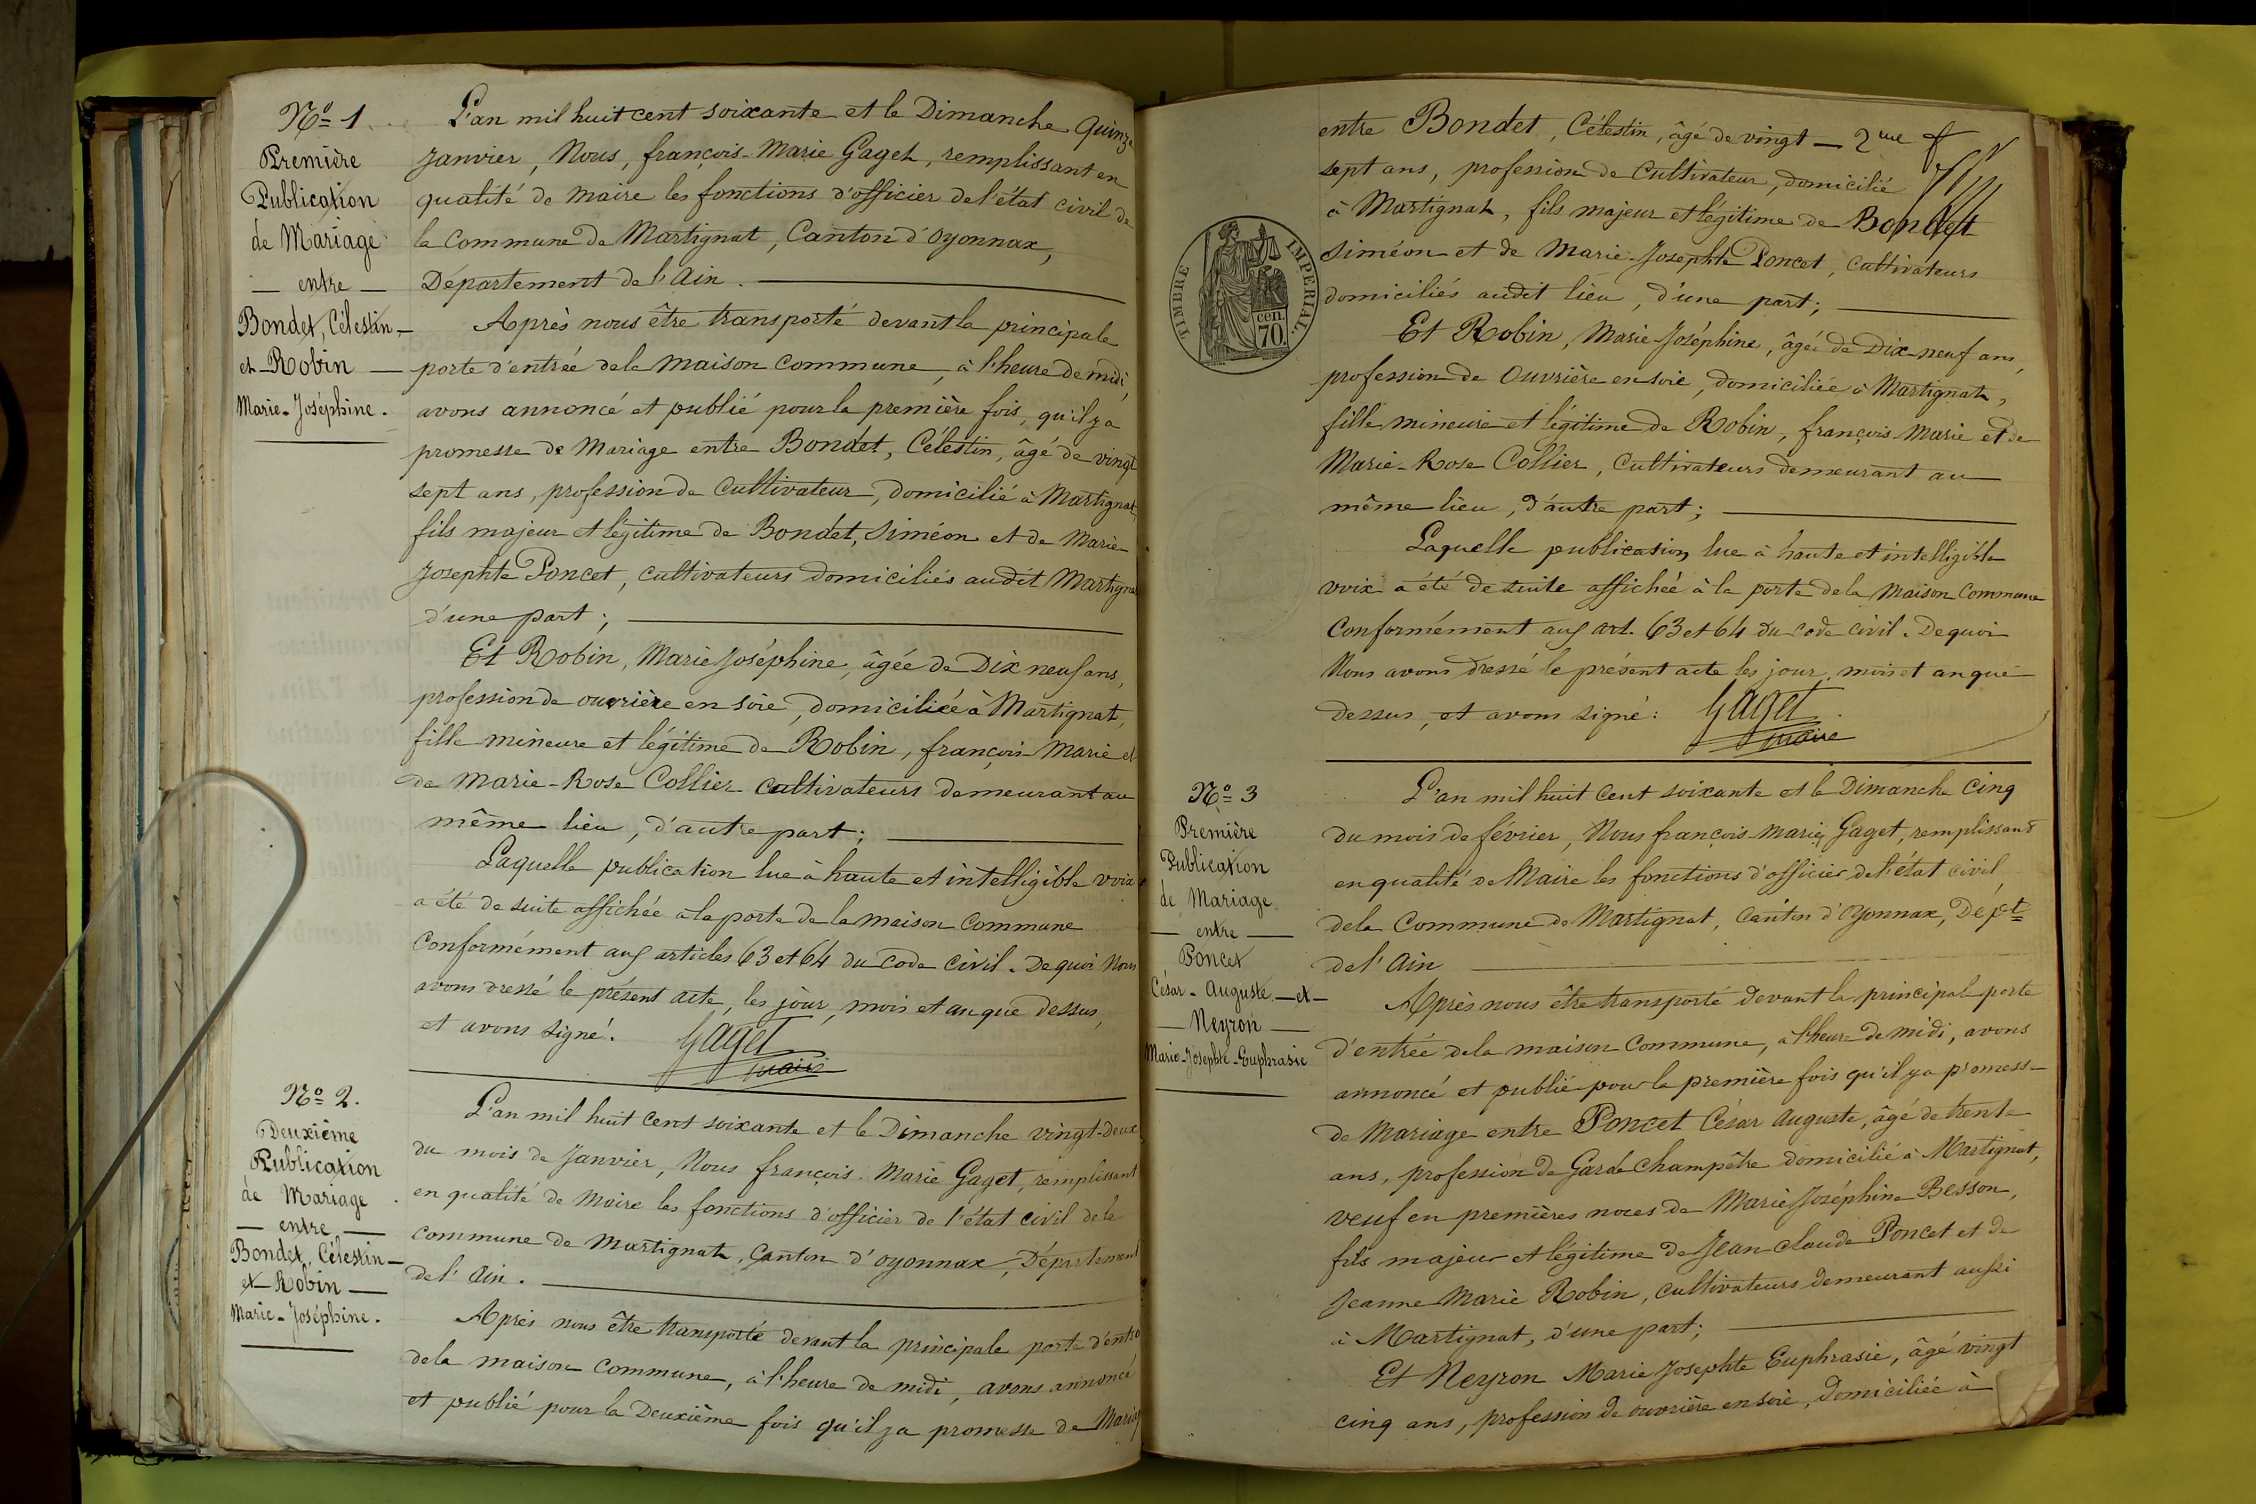 Nº 1
Première
Publication
de Mariage
— entre —
Bondet, Célestin —
et Robin —
Marie-Joséphine.
L'an mil huit cent soixante et le Dimanche Quinze
Janvier, Nous, françois-Marie Gaget, remplissant en
qualité de maire les fonctions d'officier de l'état civil de
la commune de Martignat, Canton d'Oyonnax,
Département de l'Ain. —
Après nous être transporté devant la principale
porte d'entrée de la maison commune, à l'heure de midi,
avons annoncé et publié pour la première fois, qu'il y a
promesse de Mariage entre Bondet, Célestin, âgé de vingt
sept ans, profession de Cultivateur, domicilié à Martignat,
fils majeur et légitime de Bondet, Siméon et de Marie
Josephte Poncet, cultivateurs domiciliés audit Martigna
d'une part; —
Et Robin, Marie Joséphine, âgée de Dix neuf ans,
profession de ouvrière en soie, domiciliée à Martignat,
fille mineure et légitime de Robin, françois-Marie et
de Marie-Rose Collier cultivateurs demeurant au
même lieu, d'autre part; —
Laquelle publication lue à haute et intelligible voix
a été de suite affichée à la porte de la maison commune
Conformément aux articles 63 et 64 du code civil. De quoi Nous
avons dressé le présent acte, les jour, mois et an que dessus,
et avons signé. Gaget
maire
Nº 2.
Deuxième
Publication
de Mariage
— entre —
Bondet, Célestin —
et Robin —
Marie-Joséphine.
L'an mil huit cent soixante et le Dimanche vingt-deux
du mois de Janvier, Nous françois-Marie Gaget, remplissant
en qualité de Maire les fonctions d'officier de l'état civil de la
commune de Martignat, Canton d'Oyonnax, Département
de l'Ain. —
Après nous être transporté devant la principale porte d'entré
de la maison commune, à l'heure de midi, avons annoncé
et publié pour la Deuxième fois qu'il y a promesse de Mariag
entre Bondet, Célestin, âgé de vingt — 2me f
sept ans, profession de Cultivateur, domicilié
à Martignat, fils majeur et légitime de Bondet
Siméon et de Marie-Josephte Poncet, cultivateurs
domiciliés audit lieu, d'une part; —
TIMBRE IMPERIAL.
cen.
70.
Et Robin, Marie-Joséphine, âgée de Dix-neuf ans,
profession de Ouvrière en soie, domiciliée à Martignat,
fille mineure et légitime de Robin, françois Marie et de
Marie-Rose Collier, Cultivateurs demeurant au
même lieu, d'autre part; —
Laquelle publication, lue à haute et intelligible
voix a été de suite affichée à la porte de la Maison Commune
Conformément aux art. 63 et 64 du code civil. De quoi
Nous avons dressé le présent acte les jour, mois et an que
dessus, et avons signé: Gaget
maire
Nº 3
Première
Publication
de Mariage
— entre —
Poncet
César-Auguste — et —
— Neyron —
Marie-Josephte-Euphrasie
L'an mil huit cent soixante et le Dimanche cinq
du mois de février, Nous françois-Marie Gaget, remplissant
en qualité de Maire les fonctions d'officier de l'état civil
de la Commune de Martignat, Canton d'Oyonnax, Dépt
de l'Ain —
Après nous être transporté devant la principal porte
d'entrée de la maison Commune, à l'heure de midi, avons
annoncé et publié pour la première fois qu'il y a promesse
de Mariage entre Poncet César Auguste, âgé de trente
ans, profession de Garde Champêtre domicilié à Martignat,
veuf en premières noces de Marie Joséphine Besson,
fils majeur et légitime de Jean Claude Poncet et de
Jeanne Marie Robin, cultivateurs demeurant aussi
à Martignat, d'une part; —
Et Neyron Marie Josephte Euphrasie, âgé vingt
cinq ans, profession de ouvrière en soie, domiciliée à